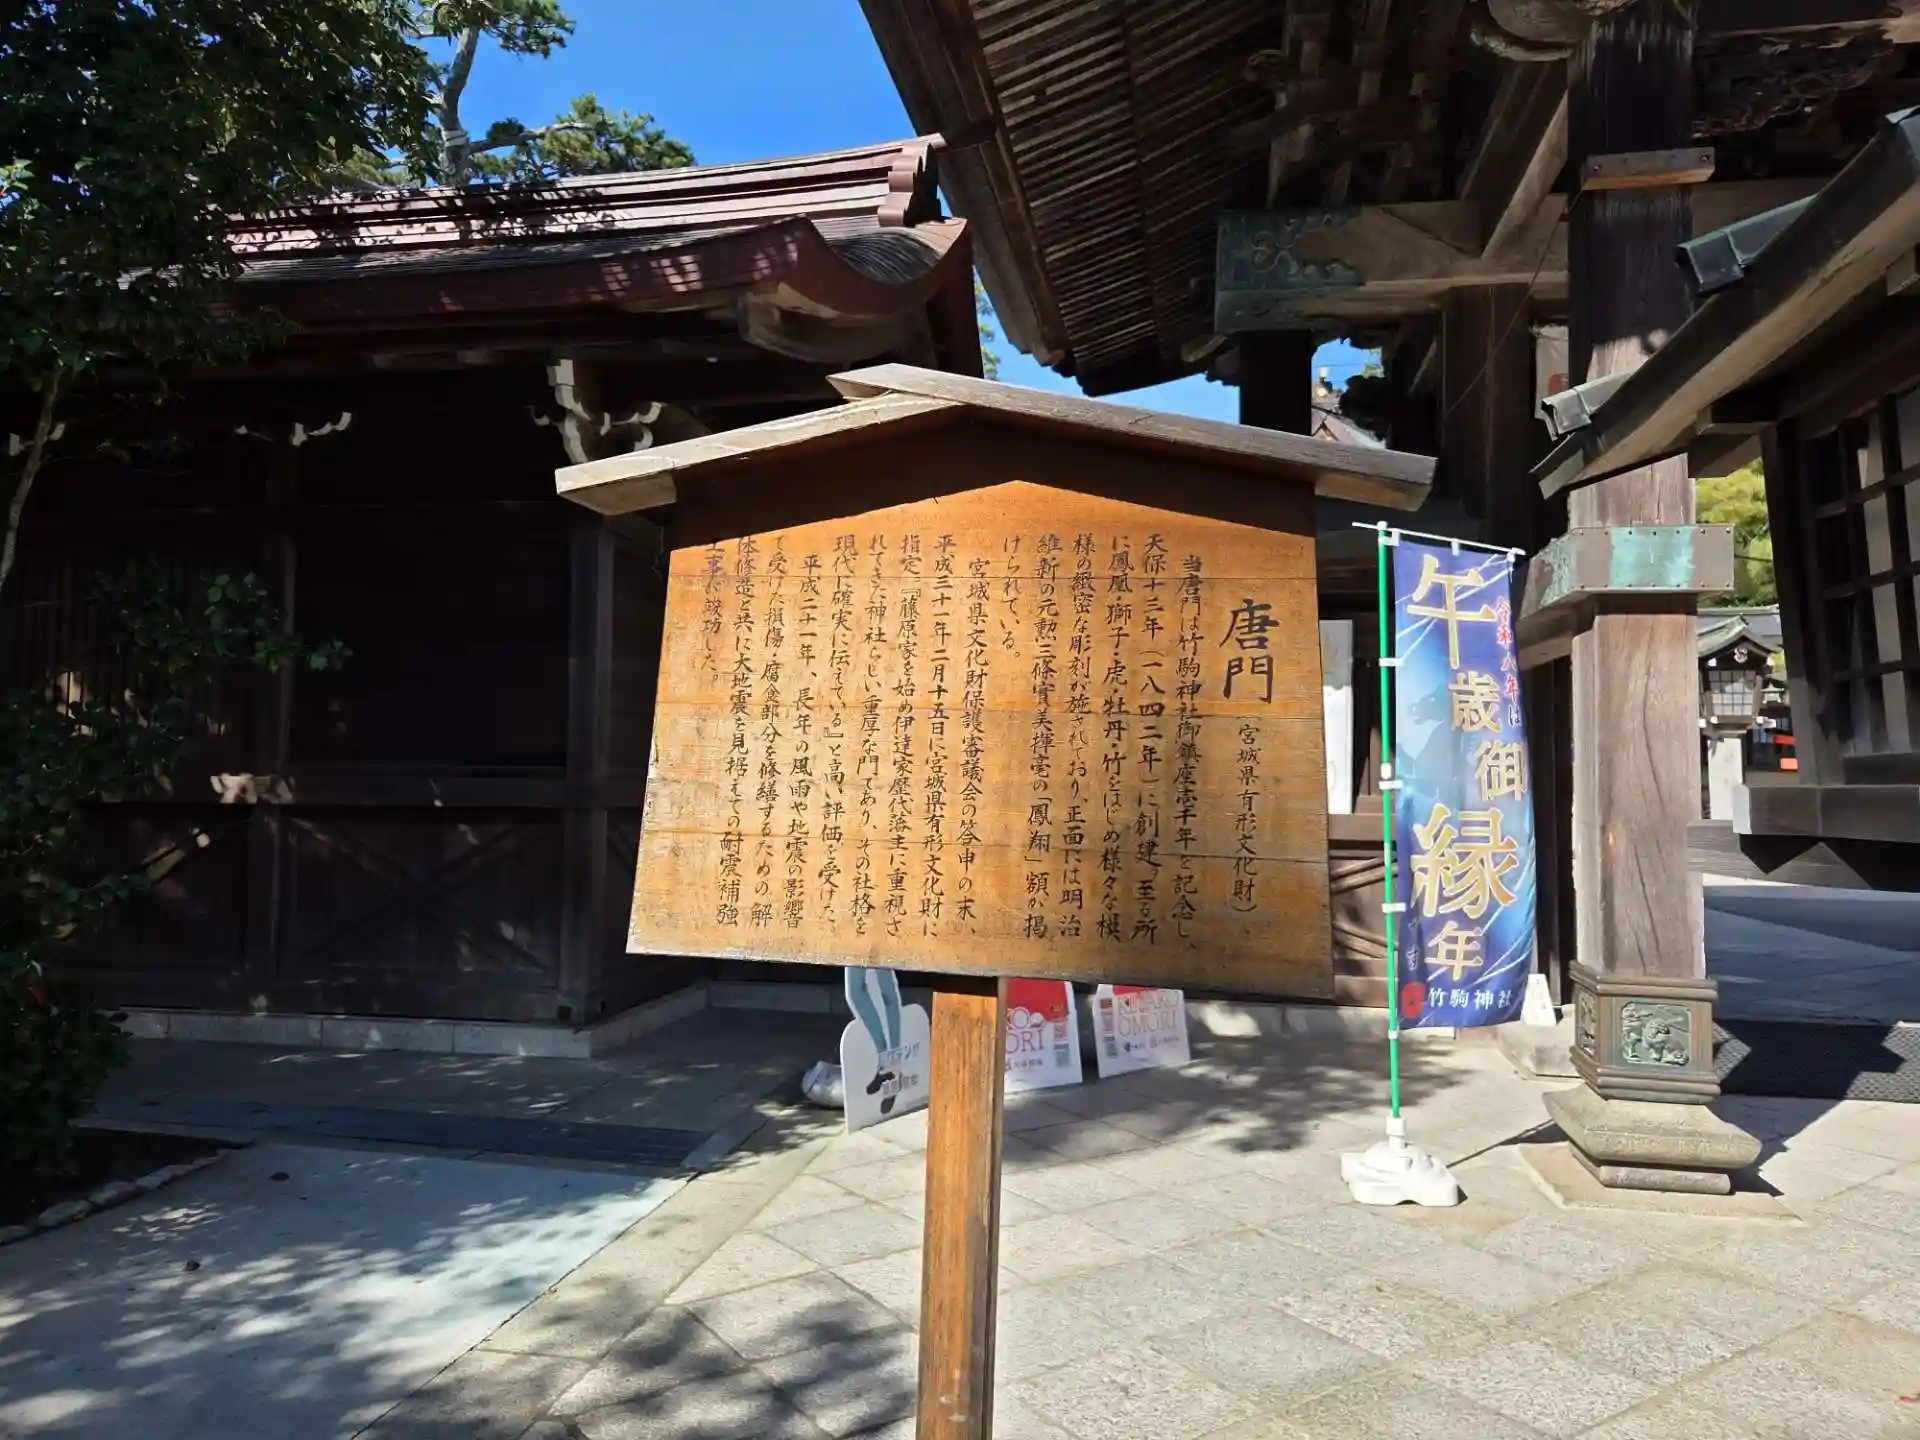 唐門(宮城県有形文化財)
当唐門は竹駒神社御鎮座壱千年を記念し、
天保十三年(一八四二年)に創建。至る所
に鳳凰・獅子・虎・牡丹・竹をはじめ様々な模
様の緻密な彫刻が施されており、正面には明治
維新の元勲三條實美揮毫の「鳳翔」額が掲
げられている。
宮城県文化財保護審議会の答申の末、
平成三十一年二月十五日に宮城県有形文化財に
指定。『藤原家を始め伊達家歴代藩主に重視さ
れてきた神社らしい重厚な門であり、その社格を
現代に確実に伝えている』と高い評価を受けた。
平成二十一年、長年の風雨や地震の影響
て受けた損傷・腐食部分を修繕するための解
体修造と共に大地震を見据えての耐震補強
工事が竣功した。
令和八年は
午歳御縁年
です
竹駒神社
KINAKO
OMORI